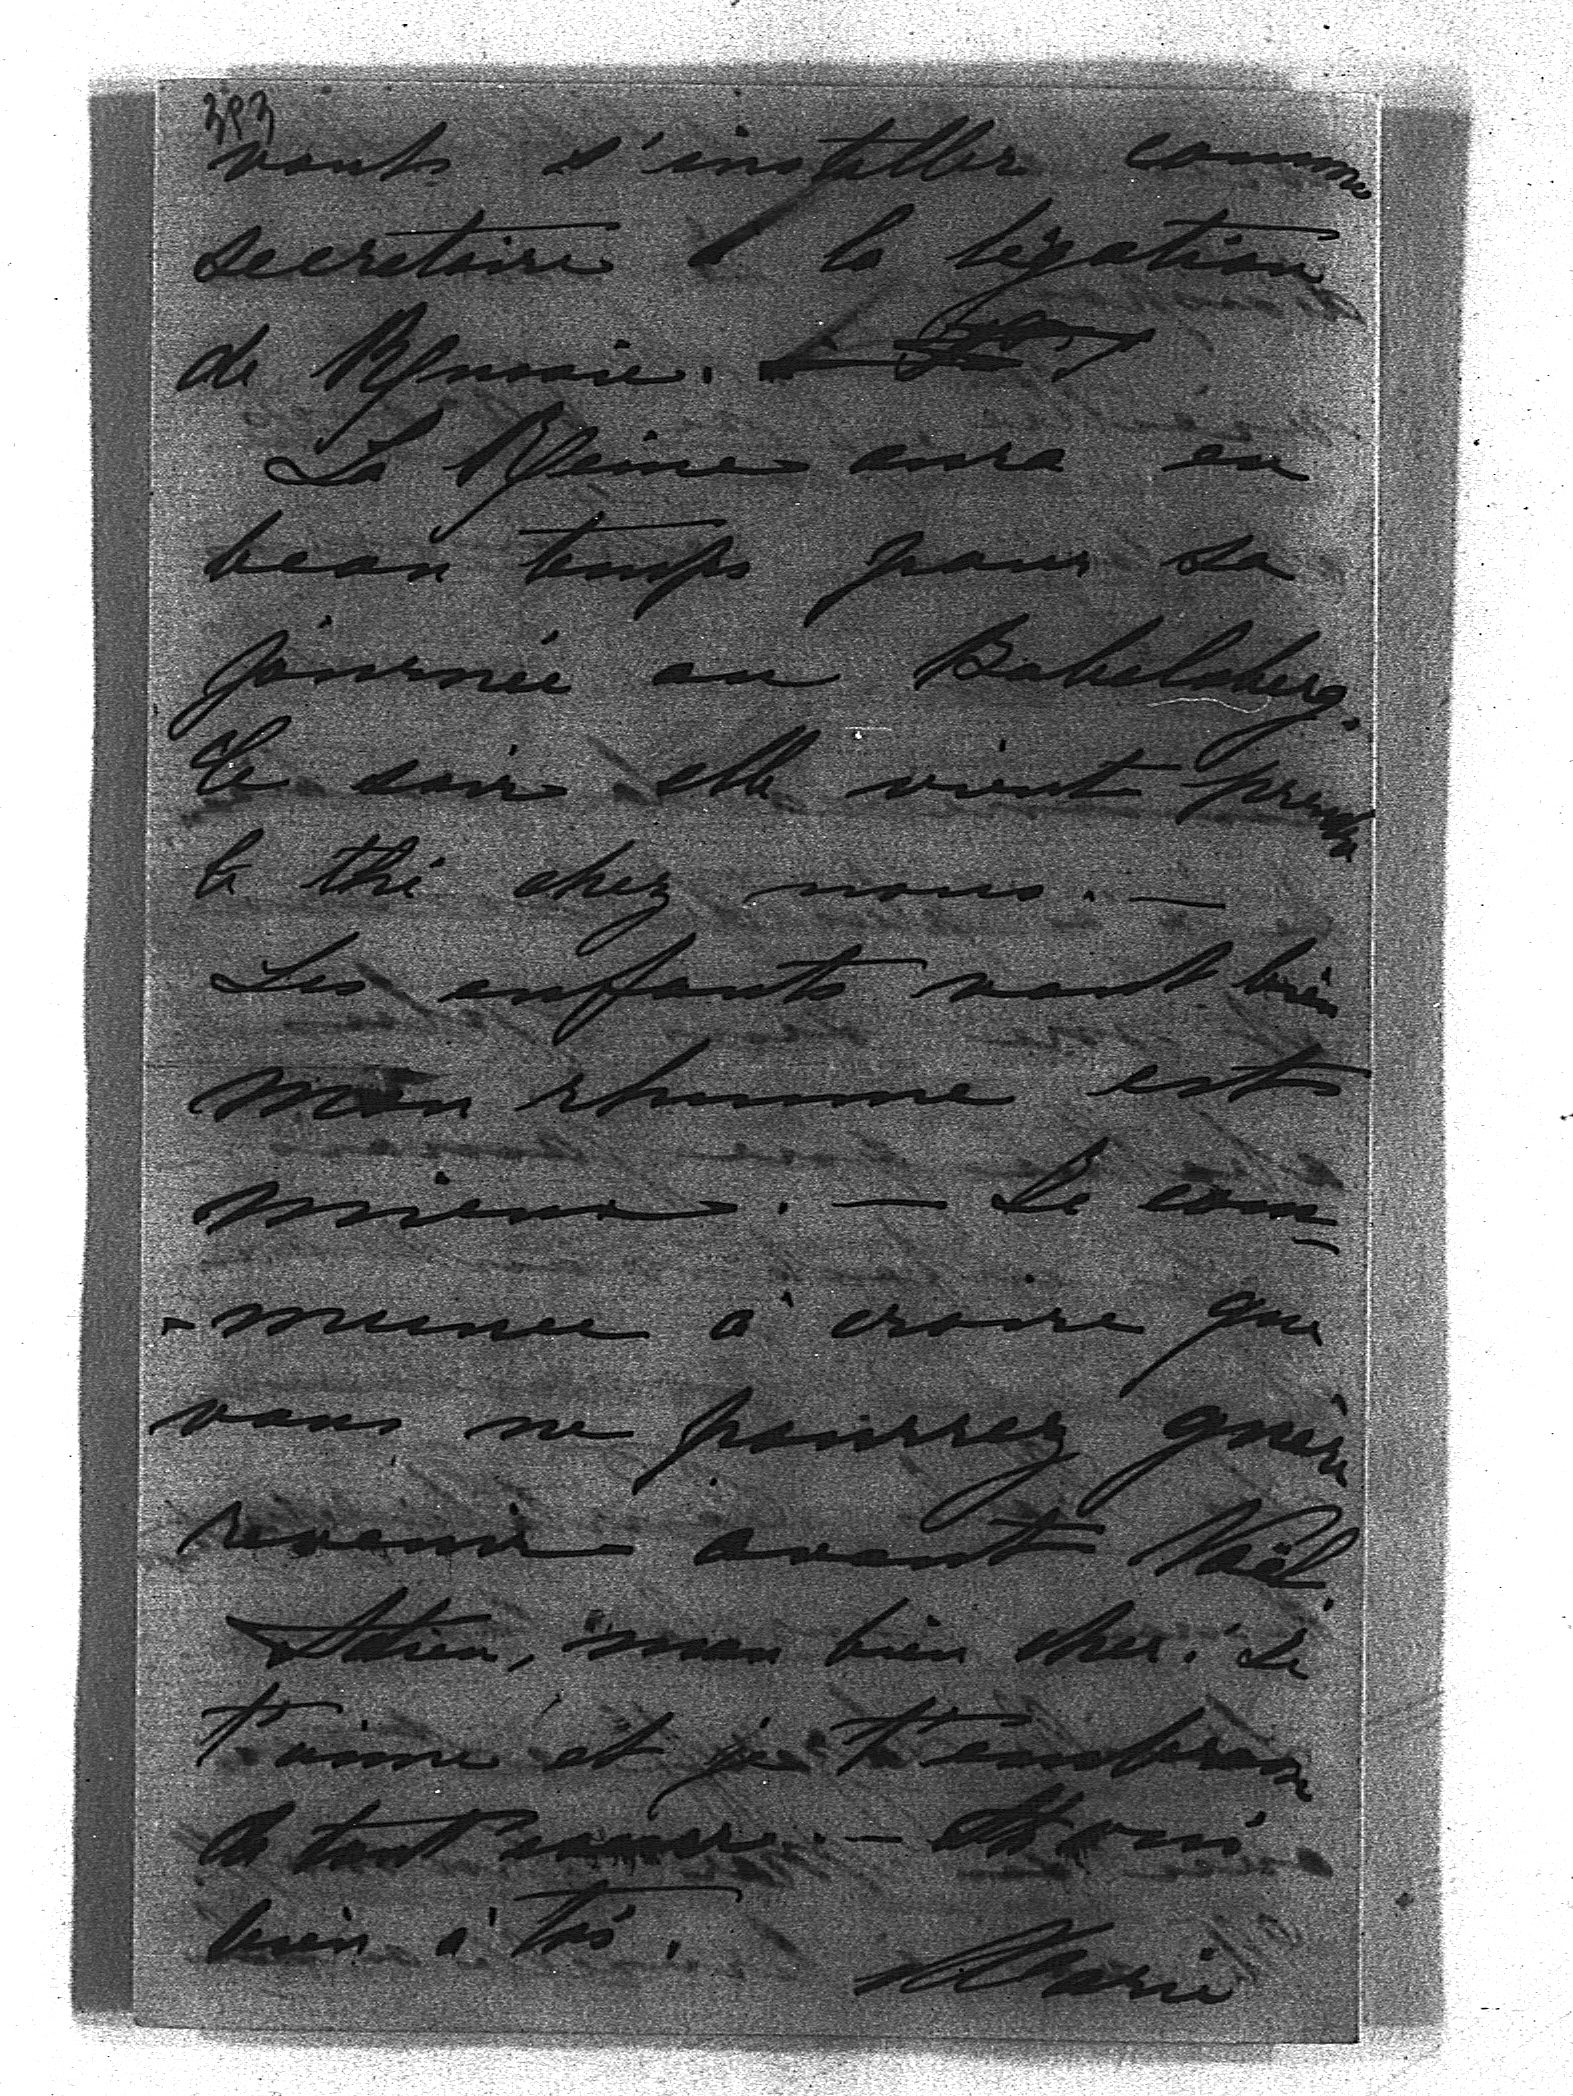 393
vouts s'installer comme
secretaire à la légation
de Rjumaie.
La Rjeine aura eu
beau temps pour sa
journée au Babelsberg.
Ce soir elle vient prendre
le thé chez nous. —
Les enfants vont bien
mon rhumme est
mieux. — Je com-
-mence à croire que
vous ne pourrez guère
revenir avant Noël.
Adieu, mon bien cher. Je
t'aime et je t'embrasse
de tout coeur. —
bien à toi.
Marie